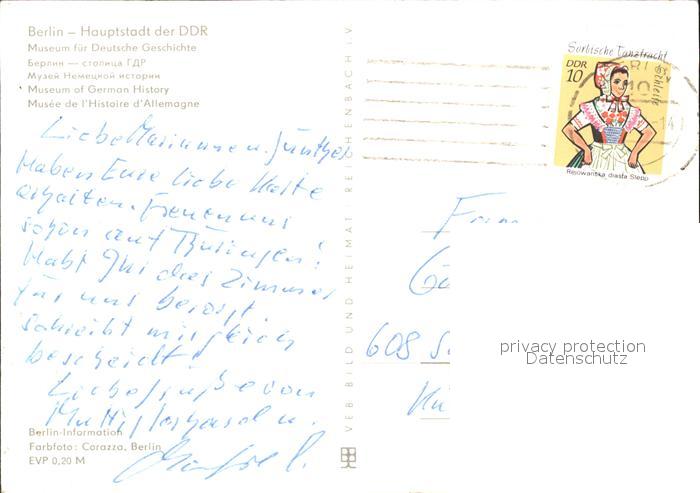 Berlin – Hauptstadt der DDR
Museum für Deutsche Geschichte
Берлин — столица ГДР
Музей Немецкой истории
Museum of German History
Musée de l'Histoire d'Allemagne
Liebe Marianne u. Günther
Haben Eure liebe Karte
erhalten. Freuen uns
schon auf Thüringen!
Habt Ihr das Zimmer
für uns besorgt
schreibt mir gleich
bescheidt!
Liebe Grüße von
Mutti u.
Berlin-Information
Farbfoto: Corazza, Berlin
EVP 0,20 M
VEB BILD UND HEIMAT REICHENBACH i V
Sorbische Tanztracht
DDR
10
Schleife
Rejowańska drasta Slepo
608 S
privacy protection
Datenschutz